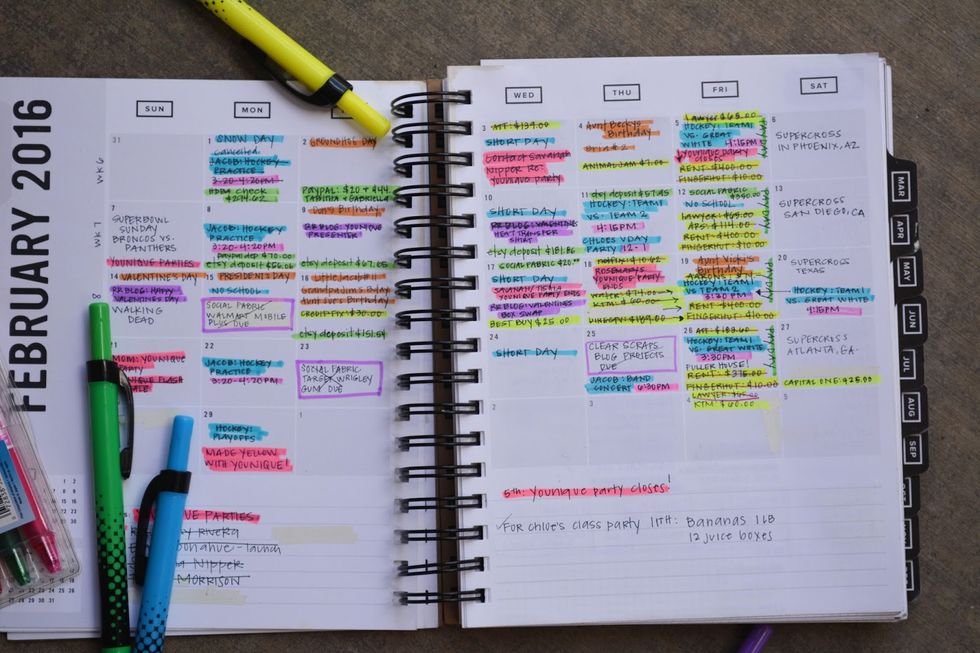 FEBRUARY 2016
SUN
MON
WED
THU
FRI
SAT
WK 6
31
1
SNOW DAY
Cancelled
JACOB: HOCKEY
PRACTICE
3:20-4:20PM
$294.62
2
GROUNDHOG DAY
PAYPAL: $20 + $44
TABITHA & GABRIELLA
3
ATT: $139.00
SHORT DAY
Contact Savanah
Nipper Re:
younique party
4
Aunt Becky's
Birthday
ANIMAL JAM $7.00
5
Lawyer $65.00
HOCKEY: TEAM 1
VS. GREAT
WHITE 4:15PM
younique party
closes
RENT $400.00
FINGERHUT $10.00
PAYDAY
6
SUPERCROSS
IN PHOENIX, AZ
WK 7
7
SUPERBOWL
SUNDAY
BRONCOS VS.
PANTHERS
YOUNIQUE PARTIES
8
JACOB: HOCKEY
PRACTICE
3:20-4:20PM
Paypal dep $70.00
etsy deposit $56.06
9
Birthday
PR BLOG: YOUNIQUE
PRESENTER
etsy deposit $67.85
10
SHORT DAY
PR BLOG: VALENTINES
HEAT TRANSFER
SHIRT
etsy deposit $181.80
11
etsy deposit $57.45
HOCKEY: TEAM 1
VS. TEAM 2
CHLOES VDAY
PARTY 12-1
12
SOCIAL FABRIC
$350.00
NO SCHOOL
LAWYER $65.00
RENT $400.00
FINGERHUT $10.00
13
SUPERCROSS
SAN DIEGO, CA
8
14
VALENTINE'S DAY
PR BLOG: HAPPY
VALENTINES DAY
WALKING
DEAD
15
PRESIDENTS DAY
NO SCHOOL
SOCIAL FABRIC
WALMART MOBILE
PLUS DUE
16
Grandpa Jim's Bday
Birthday
CREDIT FIX $30.00
etsy deposit $151.54
17
SOCIAL FABRIC $20.00
SHORT DAY
YOUNIQUE PARTY ENDS
PR BLOG: VALENTINES
BOX SWAP
BEST BUY $25.00
18
NETFLIX $10.62
ROSEMARY'S
YOUNIQUE PARTY
ENDS
KTM $60.00
DIRECTV $189.00
19
Aunt Vicki's
Birthday
HOCKEY: TEAM 1
VS TEAM 2
3:30 PM
RENT $400.00
FINGERHUT $10.00
20
SUPERCROSS
TEXAS
HOCKEY: TEAM 1
VS. GREAT WHITE
4:15PM
21
MOM: YOUNIQUE
PARTY
YOUNIQUE FLASH
SALE
22
JACOB: HOCKEY
PRACTICE
3:20-4:20PM
23
SOCIAL FABRIC
TARGET WRIGLEY
GUM DUE
24
SHORT DAY
25
CLEAR SCRAPS
BLOG PROJECTS
DUE
JACOB: BAND
CONCERT 6:30PM
26
ATT $183.60
HOCKEY: TEAM 1
VS. GREAT WHITE
3:30PM
FULLER HOUSE!
RENT $375.00
FINGERHUT $10.00
LAWYER $65.00
KTM $60.00
27
SUPERCROSS
ATLANTA, GA.
CAPITAL ONE: $25.00
29
HOCKEY:
PLAYOFFS
MADE YELLOW
WITH YOUNIQUE!
1
2
3
4
5
PARTIES
Rivera
Donahue - Launch
Nipper
MORRISON
5th: Younique party closes!
FOR CHLOE'S CLASS PARTY 11TH: Bananas 1 LB
12 juice boxes
MAR
APR
MAY
JUN
JUL
AUG
SEP
OCT